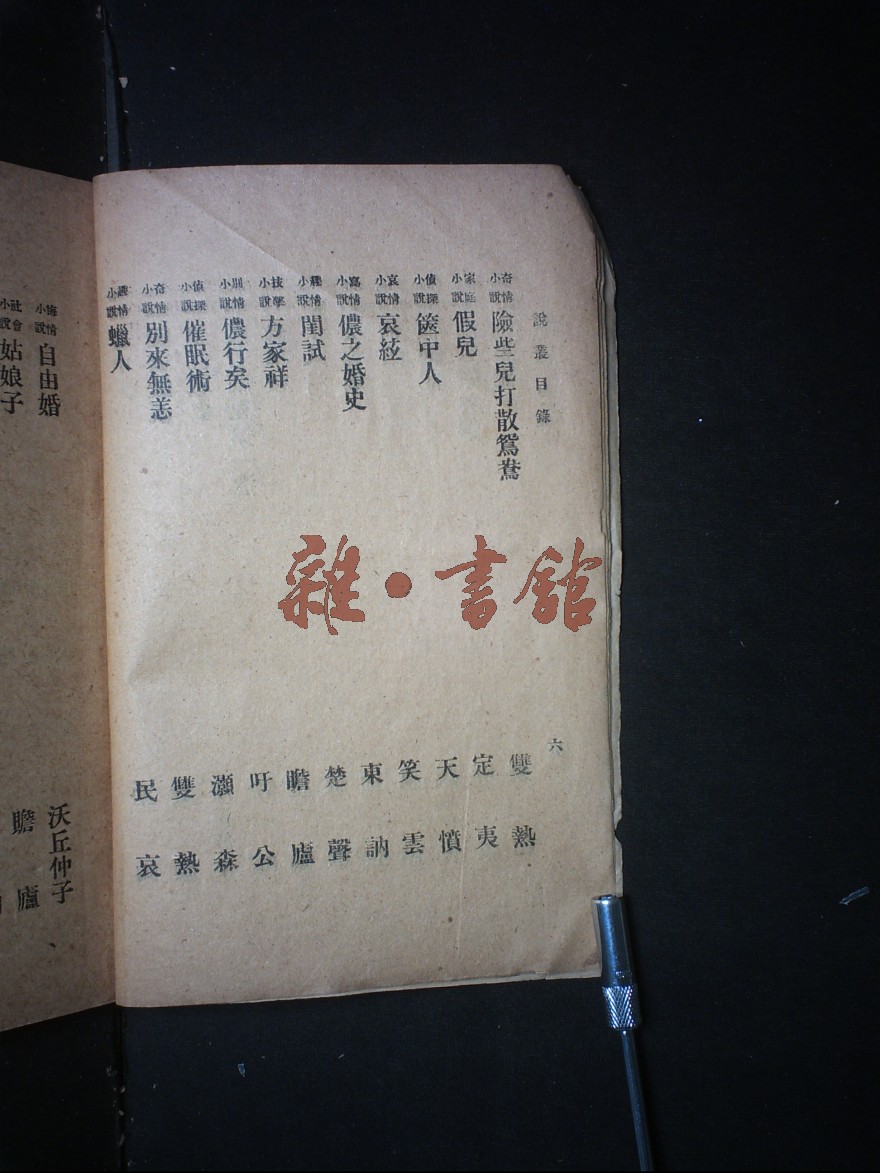 說叢目錄 六
奇情小說 險些兒打散鴛鴦 雙熱
家庭小說 假兒 定夷
偵探小說 篋中人 天憤
哀情小說 哀絃 笑雲
寫情小說 儂之婚史 東訥
情小說 閨試 楚聲
技擊小說 方家祥 瞻廬
別情小說 儂行矣 吁公
偵探小說 催眠術 灝森
奇情小說 別來無恙 雙熱
情小說 蠟人 民哀
情小說 自由婚 沃丘仲子
社會小說 姑娘子 瞻廬
雜•書館